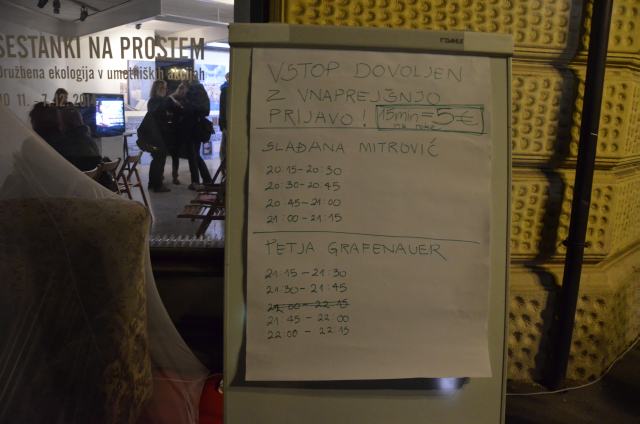 SESTANKI NA PROSTEM
Družbena ekologija v umetniških akcijah
VSTOP DOVOLJEN
Z VNAPREJŠNJO
PRIJAVO! 15min = 5€
SLAĐANA MITROVIĆ
20:15 – 20:30
20:30 – 20:45
20:45 – 21:00
21:00 – 21:15
PETJA GRAFENAUER
21:15 – 21:30
21:30 – 21:45
21:45 – 22:00
22:00 – 22:15